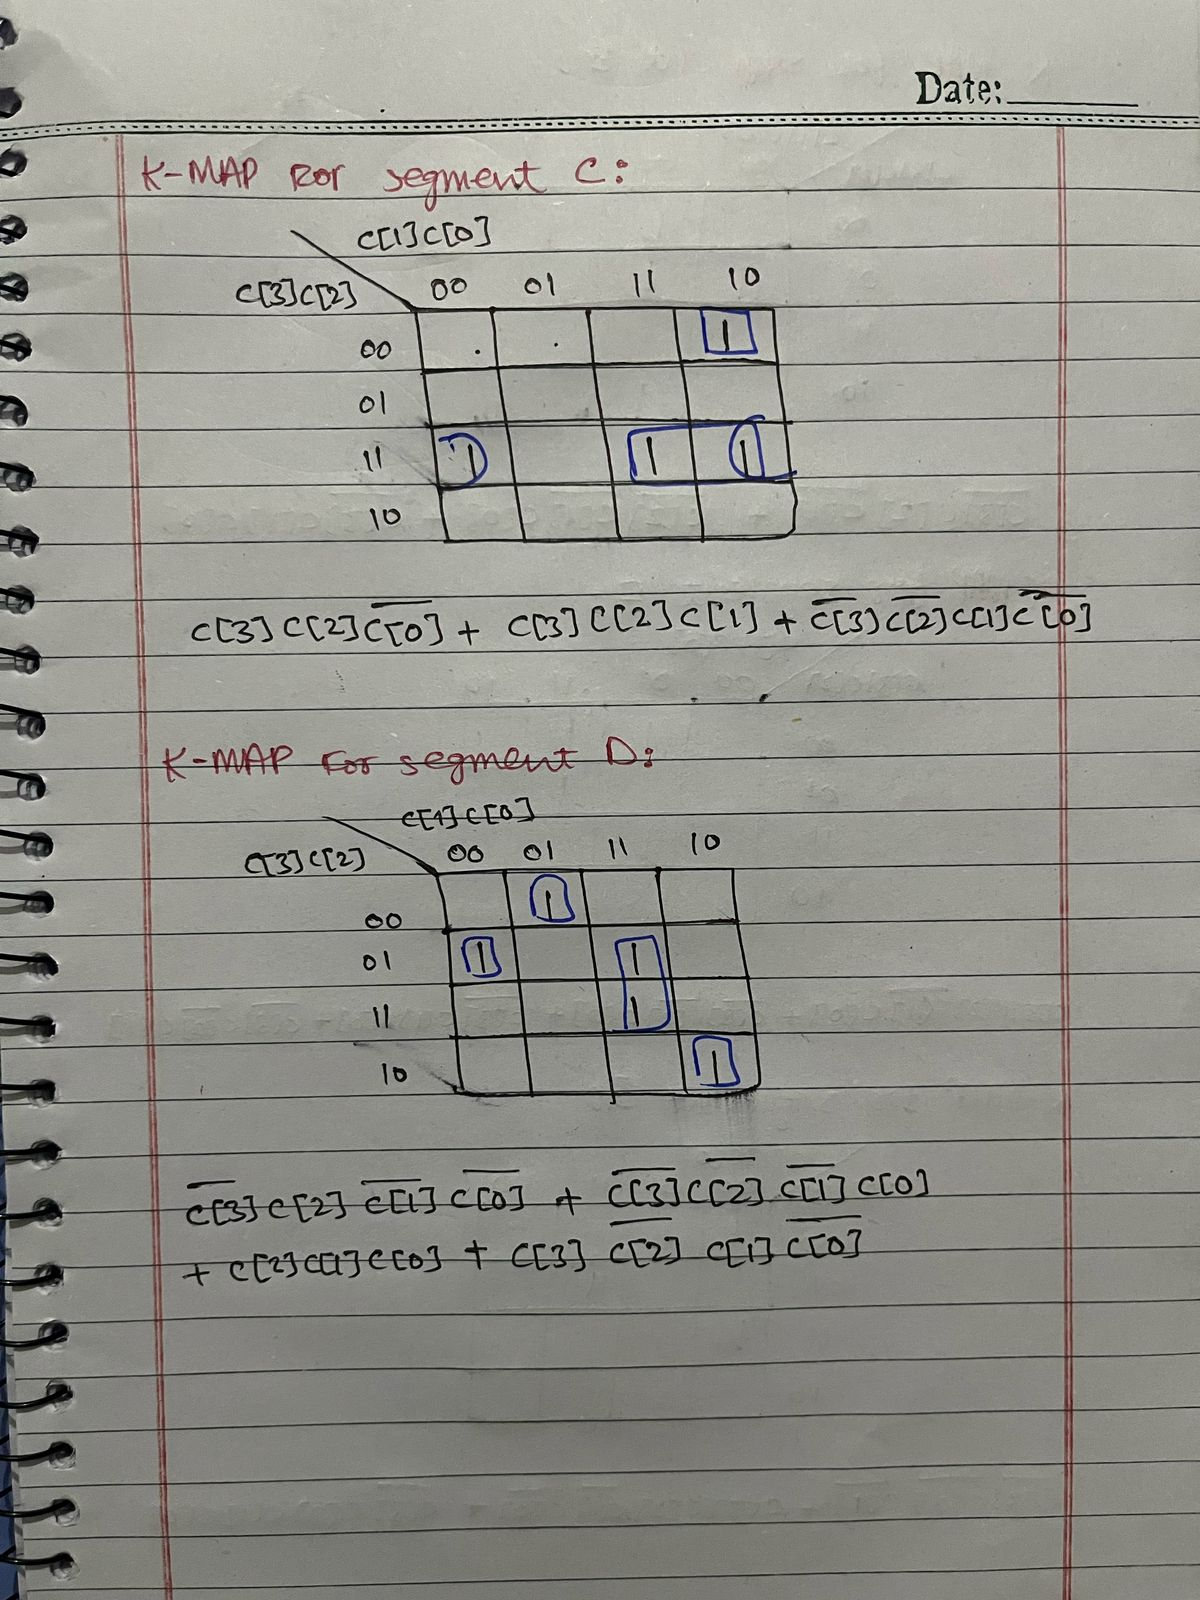 Date:
K-MAP For segment C:
C[1]C[0]
C[3]C[2] 00 01 11 10
00 1
01
11 1 1 1
10
C[3]C[2]C̅[̅0̅]̅ + C[3]C[2]C[1] + C̅[̅3̅]̅C̅[̅2̅]̅C[1]C̅[̅0̅]̅
K-MAP For segment D:
C[1]C[0]
C[3]C[2] 00 01 11 10
00 1
01 1 1
11 1
10 1
C̅[̅3̅]̅C[2]C̅[̅1̅]̅C̅[̅0̅]̅ + C̅[̅3̅]̅C̅[̅2̅]̅C̅[̅1̅]̅C[0]
+ C[2]C[1]C[0] + C[3]C̅[̅2̅]̅C[1]C̅[̅0̅]̅